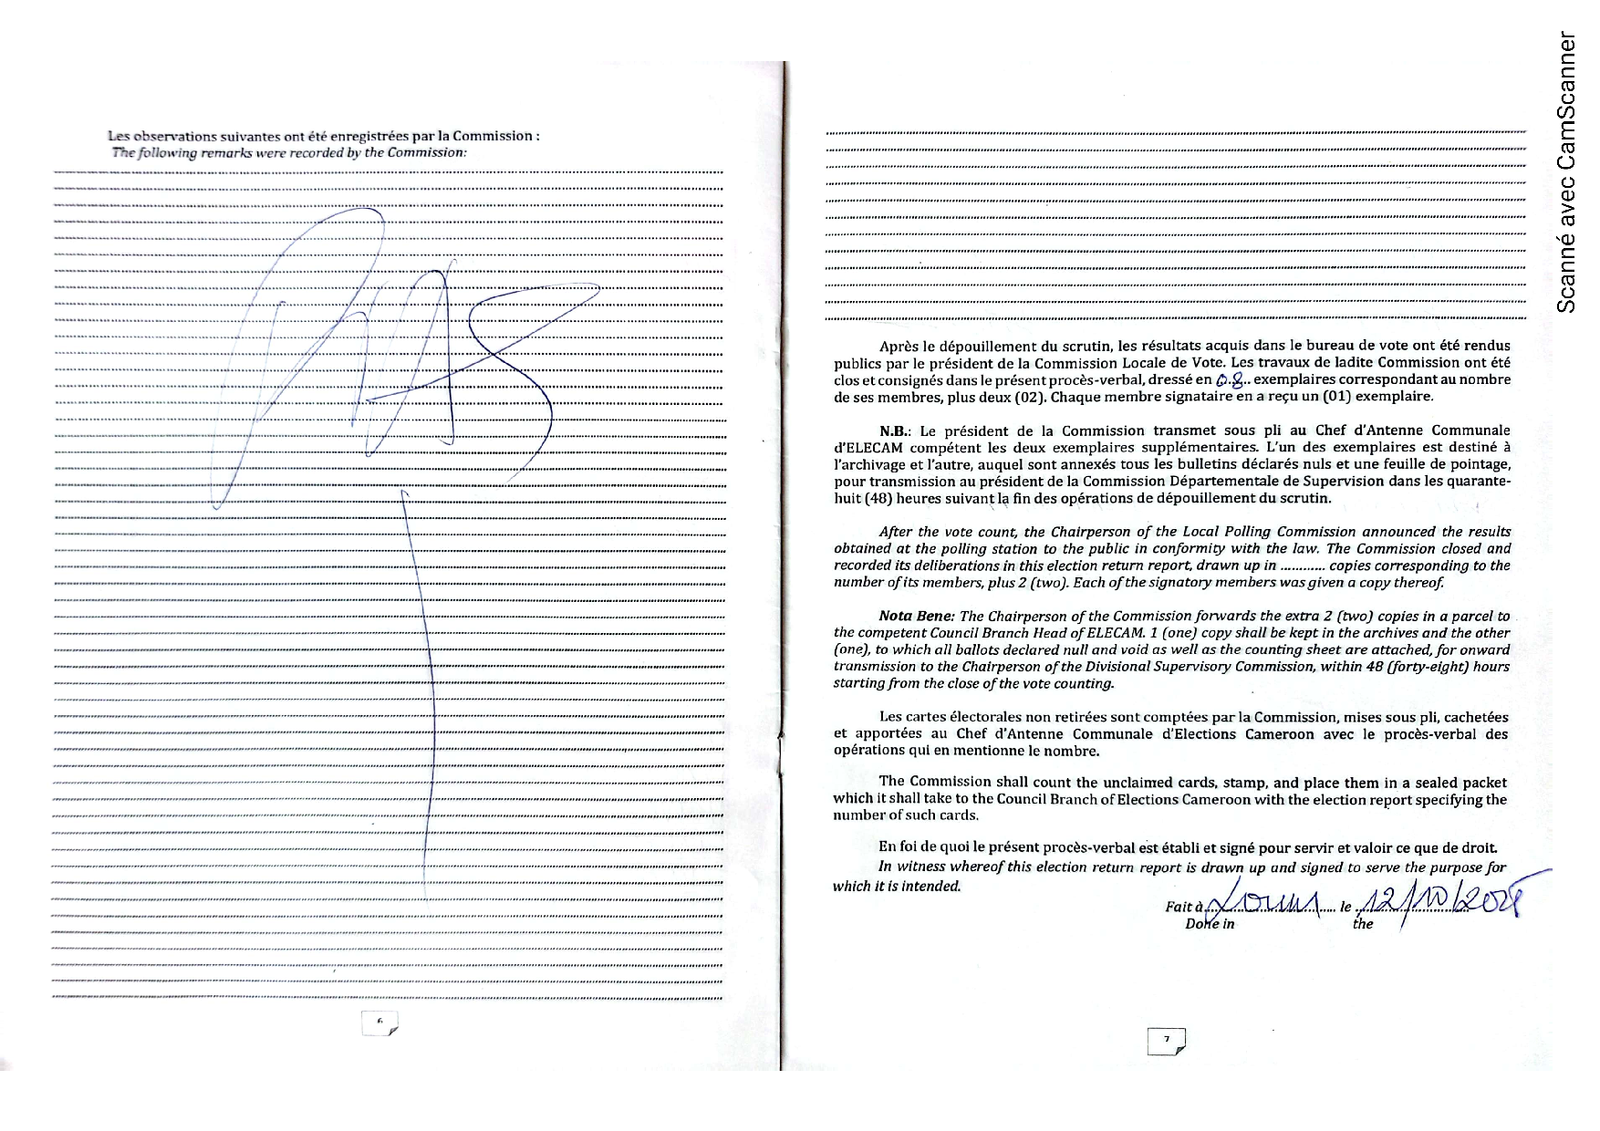 Les observations suivantes ont été enregistrées par la Commission :
The following remarks were recorded by the Commission:
RAS
6
Après le dépouillement du scrutin, les résultats acquis dans le bureau de vote ont été rendus
publics par le président de la Commission Locale de Vote. Les travaux de ladite Commission ont été
clos et consignés dans le présent procès-verbal, dressé en 08.. exemplaires correspondant au nombre
de ses membres, plus deux (02). Chaque membre signataire en a reçu un (01) exemplaire.
N.B.: Le président de la Commission transmet sous pli au Chef d'Antenne Communale
d'ELECAM compétent les deux exemplaires supplémentaires. L'un des exemplaires est destiné à
l'archivage et l'autre, auquel sont annexés tous les bulletins déclarés nuls et une feuille de pointage,
pour transmission au président de la Commission Départementale de Supervision dans les quarante-
huit (48) heures suivant la fin des opérations de dépouillement du scrutin.
After the vote count, the Chairperson of the Local Polling Commission announced the results
obtained at the polling station to the public in conformity with the law. The Commission closed and
recorded its deliberations in this election return report, drawn up in ............ copies corresponding to the
number of its members, plus 2 (two). Each of the signatory members was given a copy thereof.
Nota Bene: The Chairperson of the Commission forwards the extra 2 (two) copies in a parcel to
the competent Council Branch Head of ELECAM. 1 (one) copy shall be kept in the archives and the other
(one), to which all ballots declared null and void as well as the counting sheet are attached, for onward
transmission to the Chairperson of the Divisional Supervisory Commission, within 48 (forty-eight) hours
starting from the close of the vote counting.
Les cartes électorales non retirées sont comptées par la Commission, mises sous pli, cachetées
et apportées au Chef d'Antenne Communale d'Elections Cameroon avec le procès-verbal des
opérations qui en mentionne le nombre.
The Commission shall count the unclaimed cards, stamp, and place them in a sealed packet
which it shall take to the Council Branch of Elections Cameroon with the election report specifying the
number of such cards.
En foi de quoi le présent procès-verbal est établi et signé pour servir et valoir ce que de droit.
In witness whereof this election return report is drawn up and signed to serve the purpose for
which it is intended.
Fait à le 12/10/2025
Done in the
7
Scanné avec CamScanner